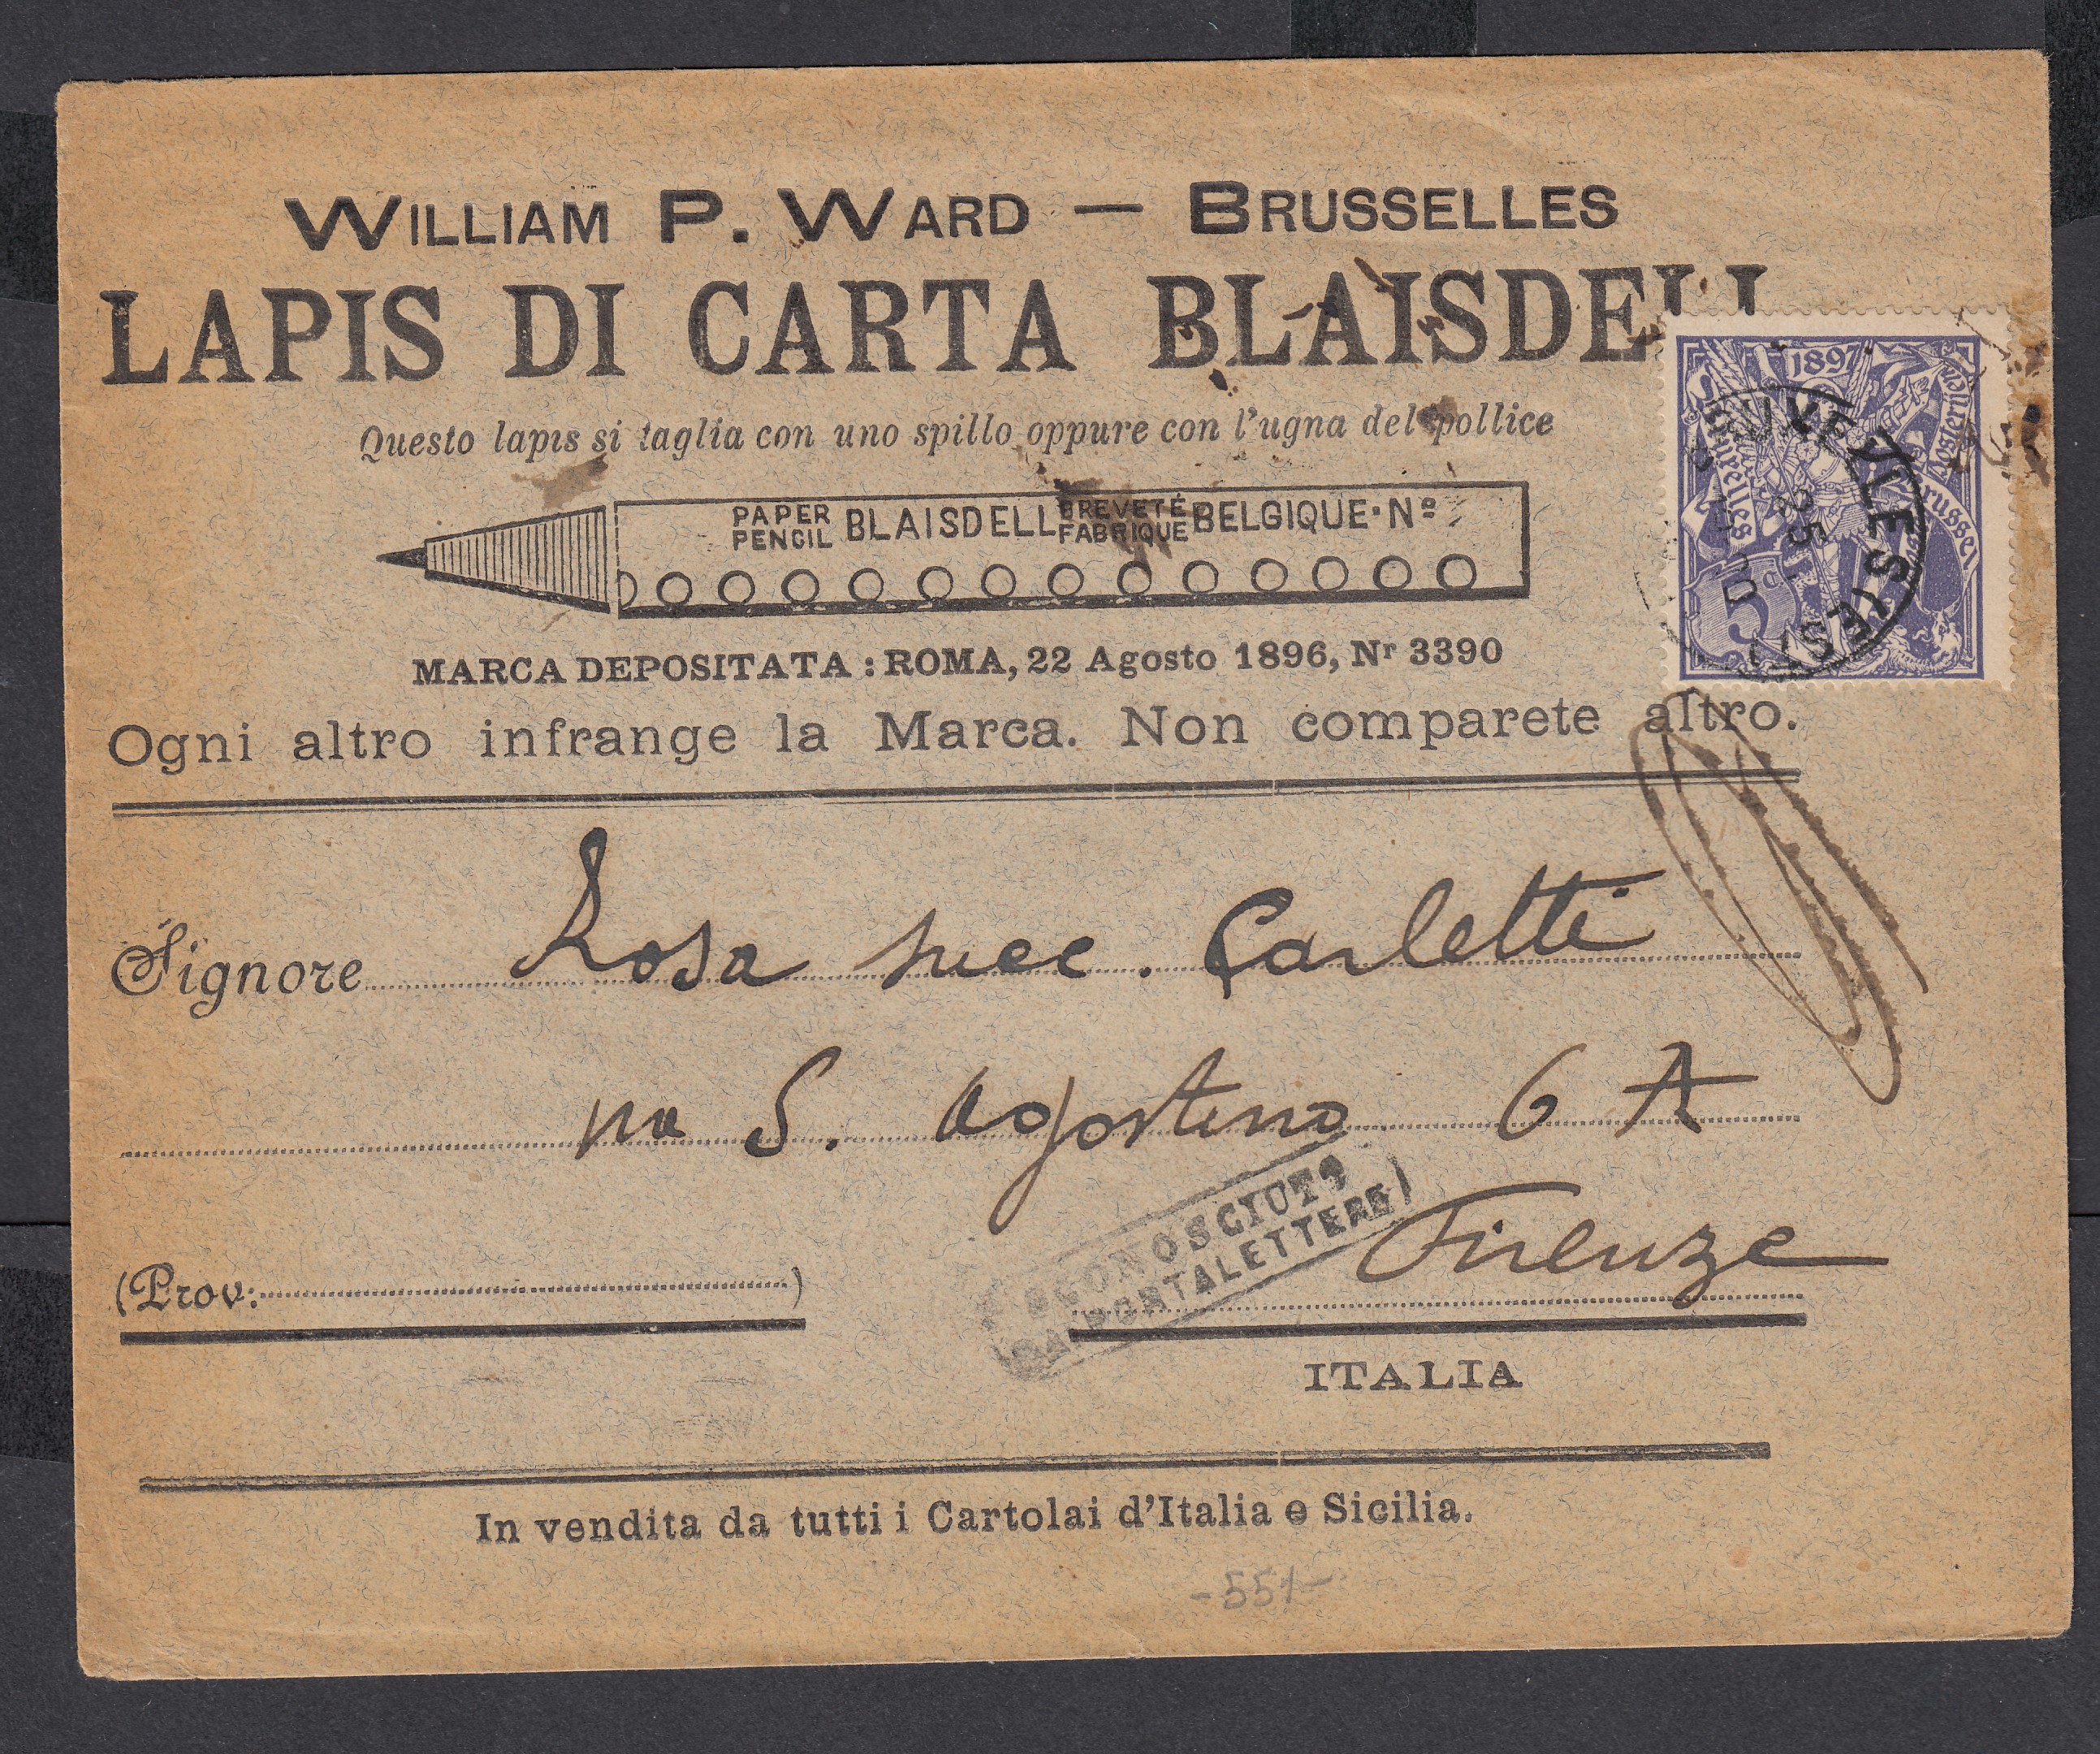 WILLIAM P. WARD — BRUSSELLES
LAPIS DI CARTA BLAISDELL
Questo lapis si taglia con uno spillo oppure con l'ugna del pollice
PAPER PENCIL BLAISDELL BREVETÉ FABRIQUE BELGIQUE · Nº
MARCA DEPOSITATA : ROMA, 22 Agosto 1896, Nr 3390
Ogni altro infrange la Marca. Non comparete altro.
1897
Bruxelles
Brussel
5 c
BRUXELLES (EST)
25
Signore Rosa succ. Carletti
via S. Agostino 6 A
SCONOSCIUTO
(DAI PORTALETTERE)
Firenze
(Prov: )
ITALIA
In vendita da tutti i Cartolai d'Italia e Sicilia.
-551-